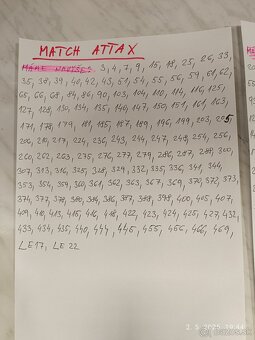 MATCH ATTAX
MÁME NAVYŠE: 3, 4, 7, 9, 15, 18, 25, 26, 33,
35, 38, 39, 40, 42, 43, 51, 54, 55, 56, 59, 61, 62
65, 66, 68, 84, 86, 90, 103, 104, 110, 114, 116, 125,
127, 128, 130, 134, 135, 140, 147, 150, 151, 161, 163,
171, 178, 179, 181, 185, 187, 189, 196, 199, 203, 205
206, 211, 217, 224, 236, 243, 244, 247, 248, 254, 256,
260, 262, 263, 275, 276, 277, 279, 286, 287, 288, 300,
307, 313, 316, 325, 328, 329, 332, 335, 336, 341, 344,
353, 354, 359, 360, 361, 362, 363, 367, 369, 370, 372, 373,
374, 377, 378, 380, 384, 386, 387, 388, 398, 400, 405, 407,
409, 410, 413, 415, 416, 418, 422, 423, 424, 425, 427, 432,
433, 434, 435, 440, 444, 445, 455, 456, 466, 469,
LE 17, LE 22
2. 5. 2025 19:44
bazos.sk